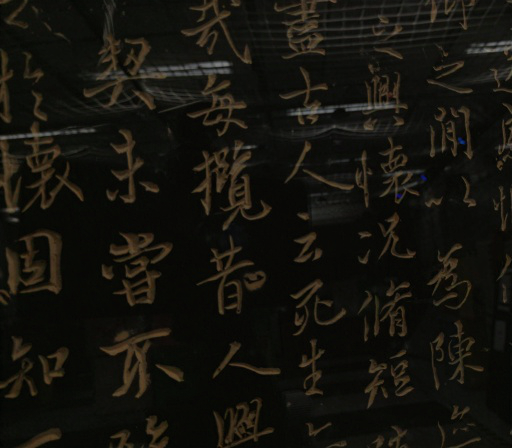 仰之間以為陳
之興懷況脩短
盡古人云死生
哉每攬昔人興
契未嘗不臨
於懷固知一